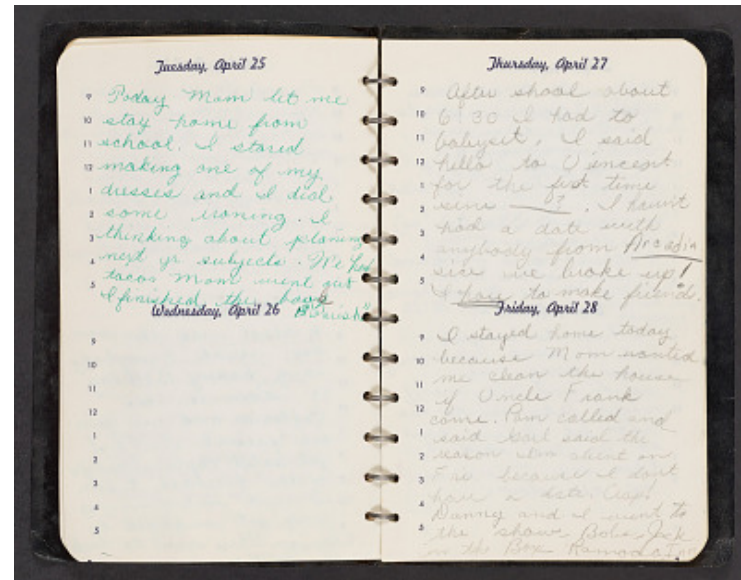 Tuesday, April 25
9 Today Mom let me
10 stay home from
11 school. I stared
12 making one of my
1 dresses and I did
2 some ironing. I
3 thinking about planing
4 next yr subjects. We had
5 tacos Mom went out
I finished the
Wednesday, April 26
9
10
11
12
1
2
3
4
5
Thursday, April 27
9 After shool about
10 6:30 I had to
11 babysit. I said
12 hello to Vincent
1 for the fist time
2 sins ? . I havnt
3 had a date with
4 anybody from Arcadia
5 sice we broke up!
I have to make friend.
Friday, April 28
9 I stayed home today
10 because Mom wanted
11 me clean the house
12 if Uncle Frank
1 come. Pam called and
2 said said the
3 reason on
4 because I dont
5 have a date.
Danny and I went to
the show
in the Box